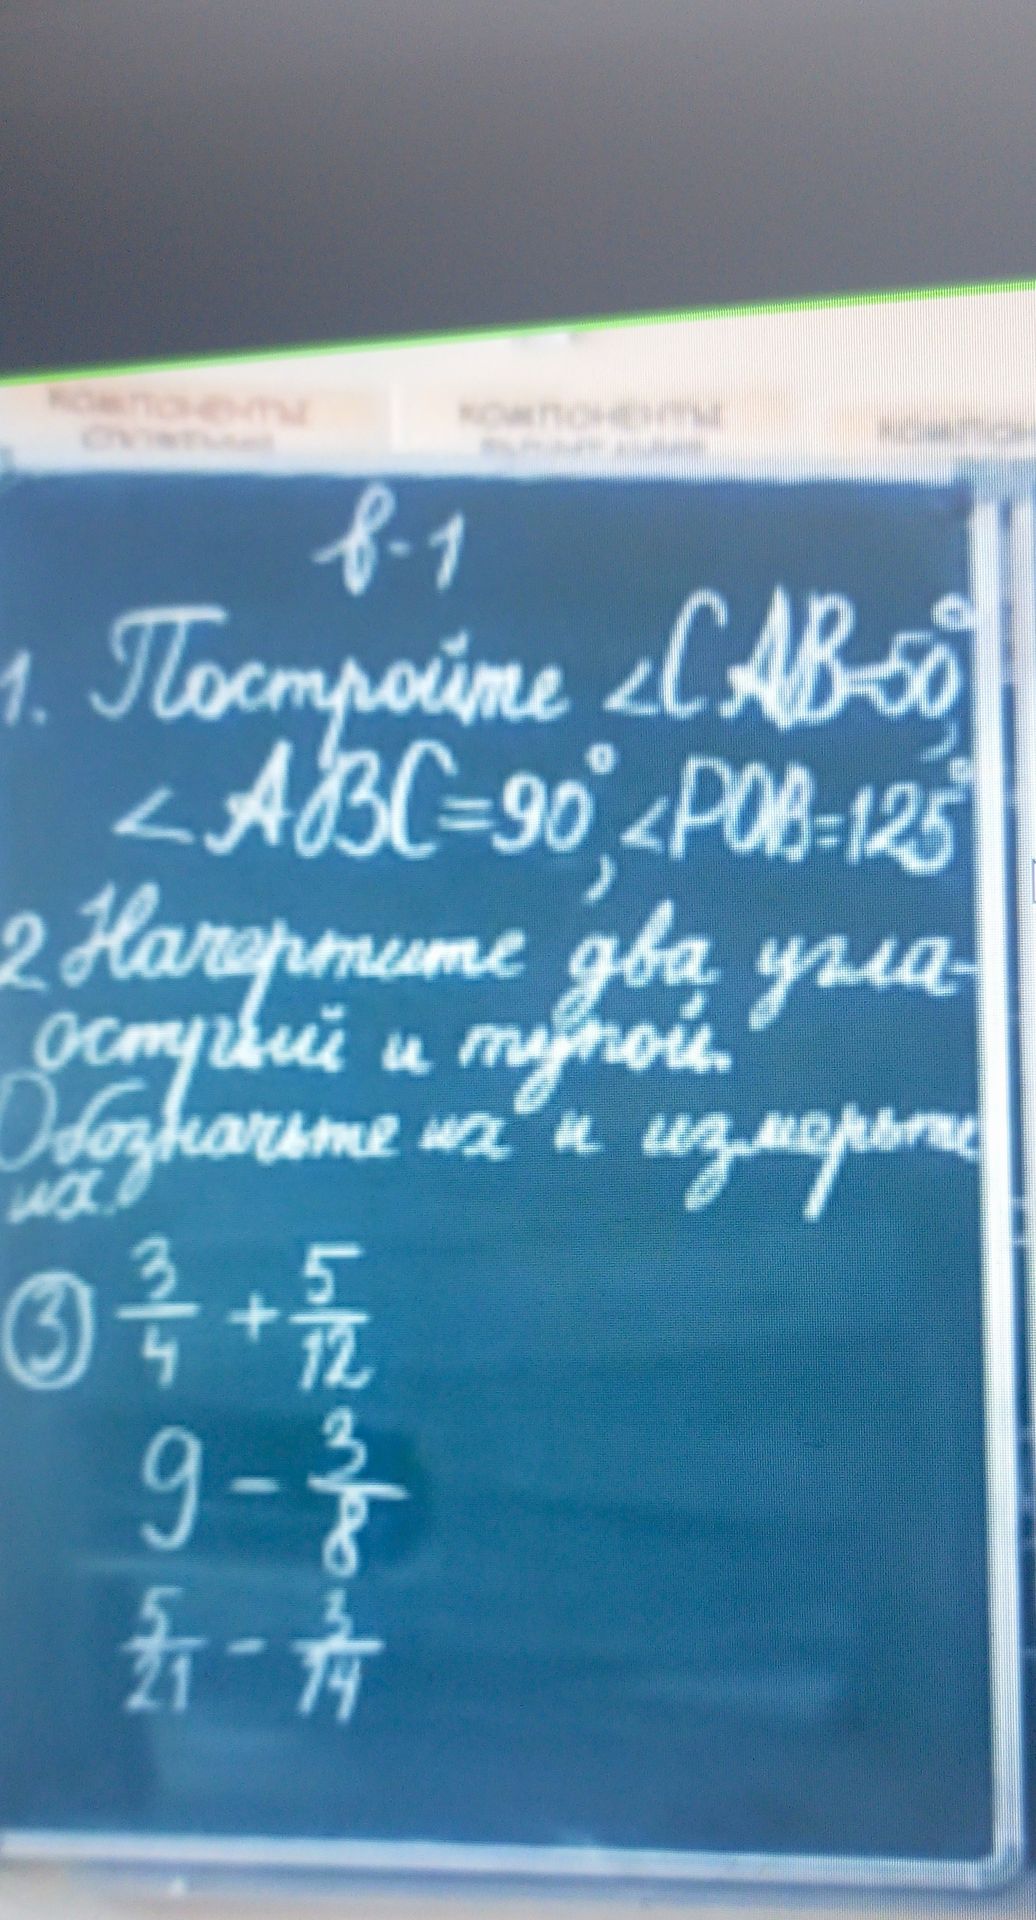 компоненты компоненты
в-1
1. Постройте <CAB=50°,
<ABC=90°, <POB=125°
2 Начертите два угла-
острый и тупой.
Обозначьте их и измерьте
их.
③ 3/4 + 5/12
9 - 3/8
5/21 - 3/14